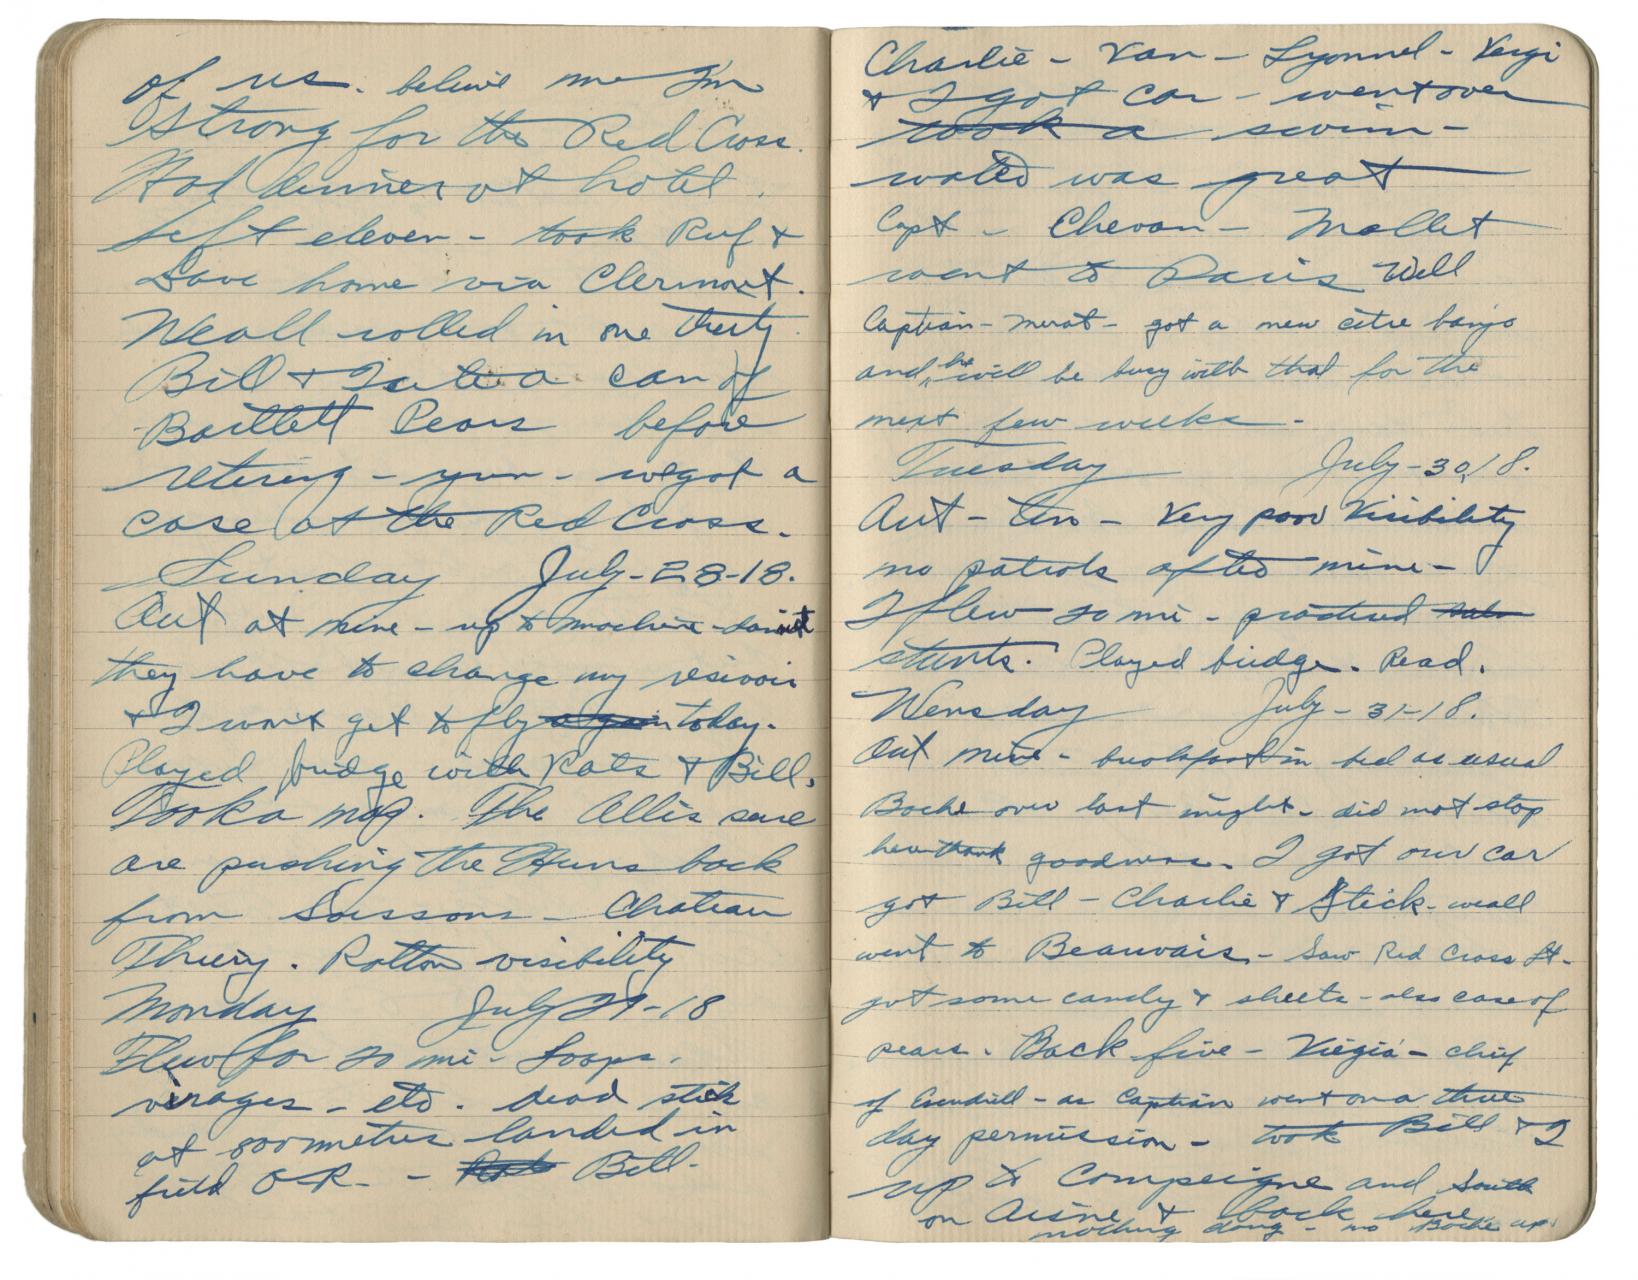 of us. believe me I'm
strong for the Red Cross.
Had dinner at hotel.
Left eleven - took Ruf &
Dave home via Clermont.
We all rolled in one thirty.
Bill & I ate a can of
Bartlett Pears before
retiring - yum - we got a
case at the Red Cross.
Sunday July-28-18.
Out at nine - up to machine - damit
they have to change my resivoir
& I won't get to fly again today.
Played bridge with Kats & Bill.
Took a nap. The Allis sure
are pushing the Huns back
from Soissons - Chateau
Thiery. Rotton visibility
Monday July 29-18
Flew for 20 mi - Loops.
virages - etc. dead stick
at 800 metres landed in
field O.K. - Bill.
Charlie - Van - Lyonnel - Vergi
& I got car - went over
took a swim -
water was great
Capt - Chevan - Mallet
went to Paris Well
Captian - Merat - got a new citre banjo
and he will be busy with that for the
next few weeks -
Tuesday July-30,18.
Out - ten - Very poor Visibility
no patrols after nine -
I flew 20 mi - practised
stunts. Played bridge. Read.
Wensday July-31-18.
Out nine - breakfast in bed as usual
Boche over last night - did not stop
here thank goodness. I got our car
got Bill - Charlie & Stick. we all
went to Beauvais - Saw Red Cross Lt -
got some candy & sheets - also case of
pears. Back five - Viegia - chief
of Esendrill - as Captian went on a three
day permission - took Bill & I
up to Compeigne and South
on Aisne & back here
nothing doing - no Boche up.